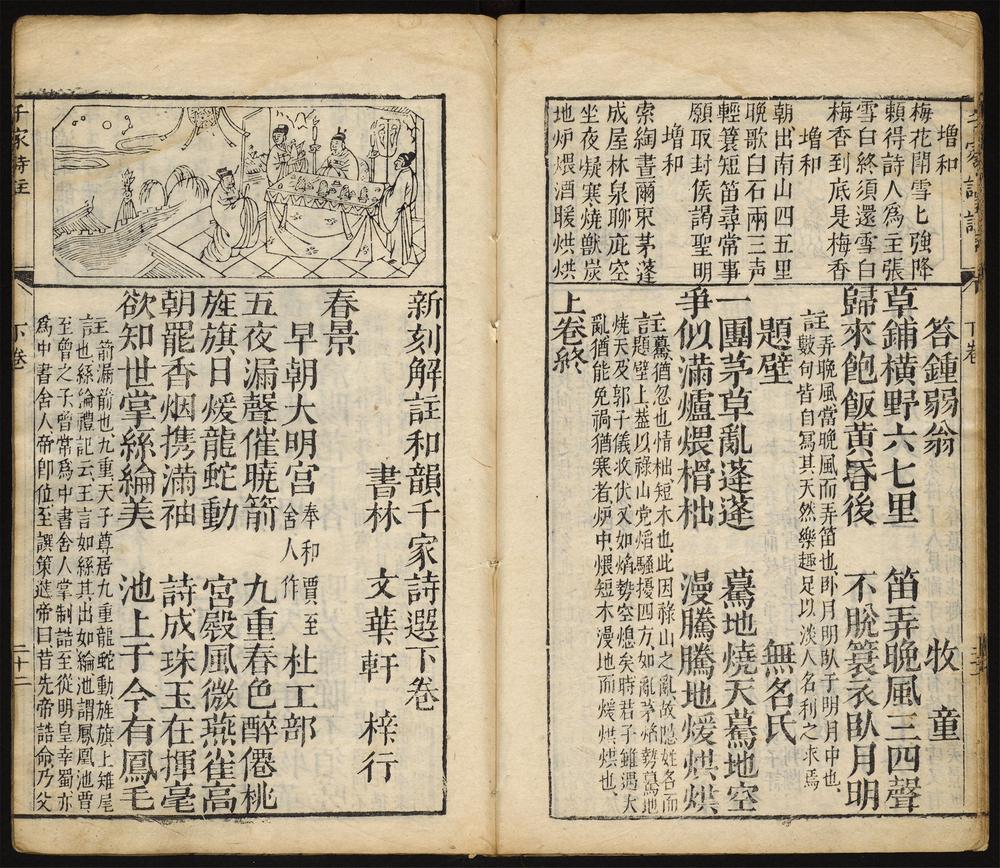 增和
梅花閙雪上強降
賴得詩人爲主張
雪白終須還雪白
梅香到底是梅香
增和
朝出南山四五里
晩歌白石兩三声
輕簑短笛尋常事
願取封侯謁聖明
增和
索綯晝爾束茅蓬
成屋林泉聊庇空
坐夜凝寒燒獸炭
地炉煨酒暖烘烘
答鍾弱翁 牧童
草鋪橫野六七里 笛弄晩風三四聲
歸來飽飯黃昏後 不脫簑衣臥月明
註弄晩風當晩風而弄笛也卧月明臥于明月中也
數句皆自寫其天然樂趣足以淡人名利之求焉
題壁 無名氏
一團茅草亂蓬蓬 驀地燒天驀地空
爭似滿爐煨榾柮 漫騰騰地煖烘烘
註驀猶忽也榾柮短木也此因禄山之亂故隠姓名而
題壁上盖以祿山党熖騷擾四方如亂茅焰勢驀地
燒天及郭子儀收伏又如焰勢空熄矣時君子雖遇大
亂猶能免禍猶寒者炉中煨短木漫地而煖烘烘也
上卷終
新刻解註和韻千家詩選下卷
書林 文華軒 梓行
春景
早朝大明宫 奉和賈至舍人作 杜工部
五夜漏聲催曉箭 九重春色醉僊桃
旌旗日煖龍蛇動 宮殿風微燕雀高
朝罷香烟携滿袖 詩成珠玉在揮毫
欲知世掌絲綸美 池上于今有鳳毛
註箭漏箭也九重天子尊居九重龍蛇動旌旗上雉尾
言也絲綸禮記云王言如絲其出如綸池謂鳳凰池賈
至曾之子曾常爲中書舍人掌制誥至從明皇幸蜀亦
爲中書舍人帝卽位至譔策進帝曰昔先帝誥命乃父
千家詩註
下卷
二十二